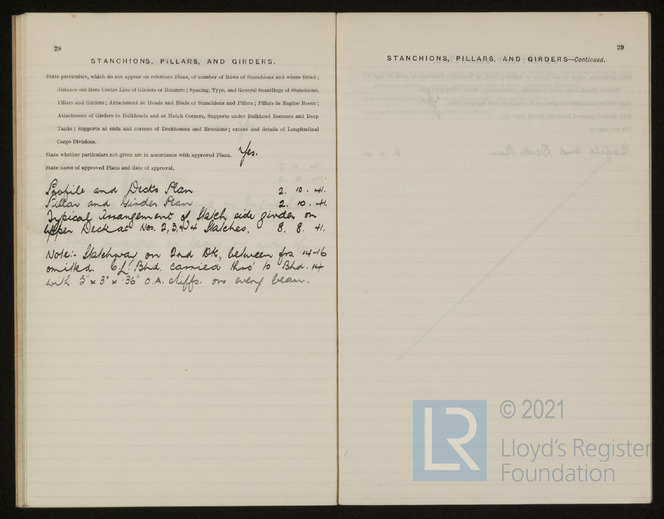 28
STANCHIONS, PILLARS, AND GIRDERS.
State particulars, which do not appear on reference Plans, of number of Rows of Stanchions and where fitted;
distance out from Centre Line of Girders or Runners; Spacing, Type, and General Scantlings of Stanchions,
Pillars and Girders; Attachment at Heads and Heels of Stanchions and Pillars; Pillars in Engine Room;
Attachment of Girders to Bulkheads and at Hatch Corners, Supports under Bulkhead Recesses and Deep
Tanks; Supports at ends and corners of Deckhouses and Erections; extent and details of Longitudinal
Cargo Divisions.
State whether particulars not given are in accordance with approved Plans. Yes.
State name of approved Plans and date of approval.
Profile and Decks Plan 2. 10. 41.
Pillar and Girder Plan 2. 10. 41.
Typical Arrangement of Hatch side girder on
Upper Deck at Nos. 2, 3, & 4 Hatches. 8. 8. 41.
Note:- Hatchway on 2nd Dk, between frs. 14-16
omitted. Bhd. carried thro' to Bhd. 14
with 5" x 3" x .36" O.A. stiffs. on every beam.
29
STANCHIONS, PILLARS, AND GIRDERS—Continued.
LR
© 2021
Lloyd's Register
Foundation